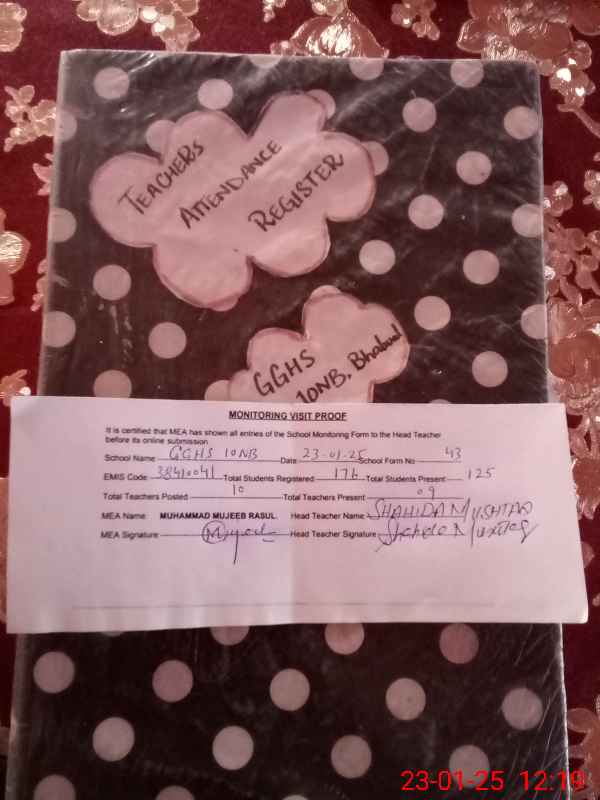 TEACHERS
ATTENDANCE
REGISTER
GGHS
10NB, Bhabual
MONITORING VISIT PROOF
It is certified that MEA has shown all entries of the School Monitoring Form to the Head Teacher
before its online submission
School Name GGHS 10NB Date 23-01-25 School Form No 43
EMIS Code 38410041 Total Students Registered 176 Total Students Present 125
Total Teachers Posted 10 Total Teachers Present 09
MEA Name: MUHAMMAD MUJEEB RASUL. Head Teacher Name SHAHIDA MUSHTAQ
MEA Signature Mujeeb Head Teacher Signature Shahida Mushtaq
23-01-25 12:19